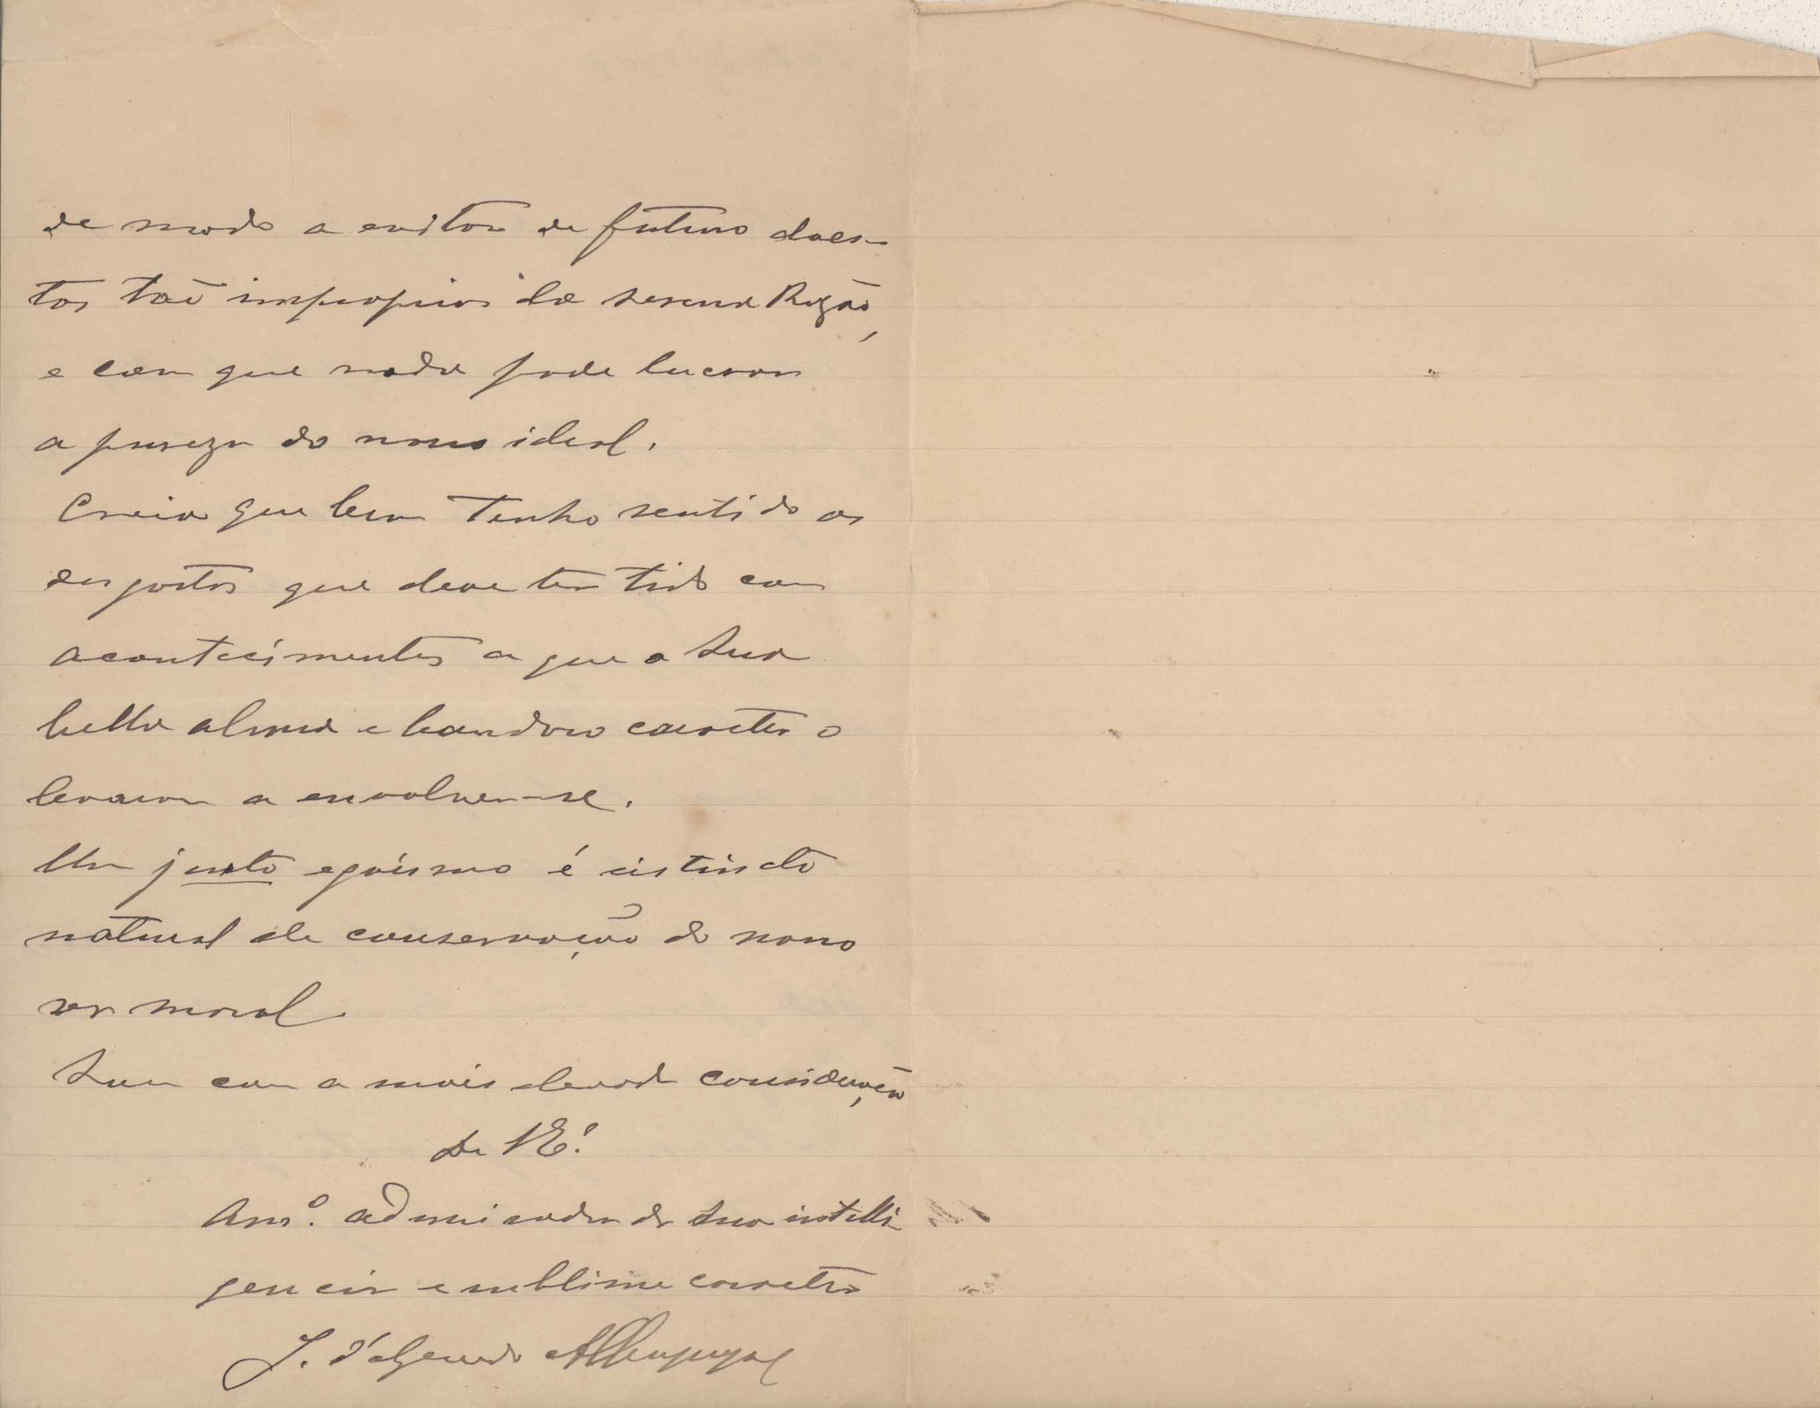 de modo a evitar de futuro does-
tos tão improprios da serena Razão,
e com que nada pode lucrar
a pureza do nosso ideal.
Creia que bem tenho sentido os
desgostos que deve ter tido com
acontecimentos a que a sua
bella alma e bondoso caracter o
levaram a envolver-se.
Um justo egoismo é instincto
natural de conservação do nosso
ser moral
Sou com a mais elevada consideração
De V.E.
Amº. admirador da sua intelli
gencia e sublime caracter
J. d'